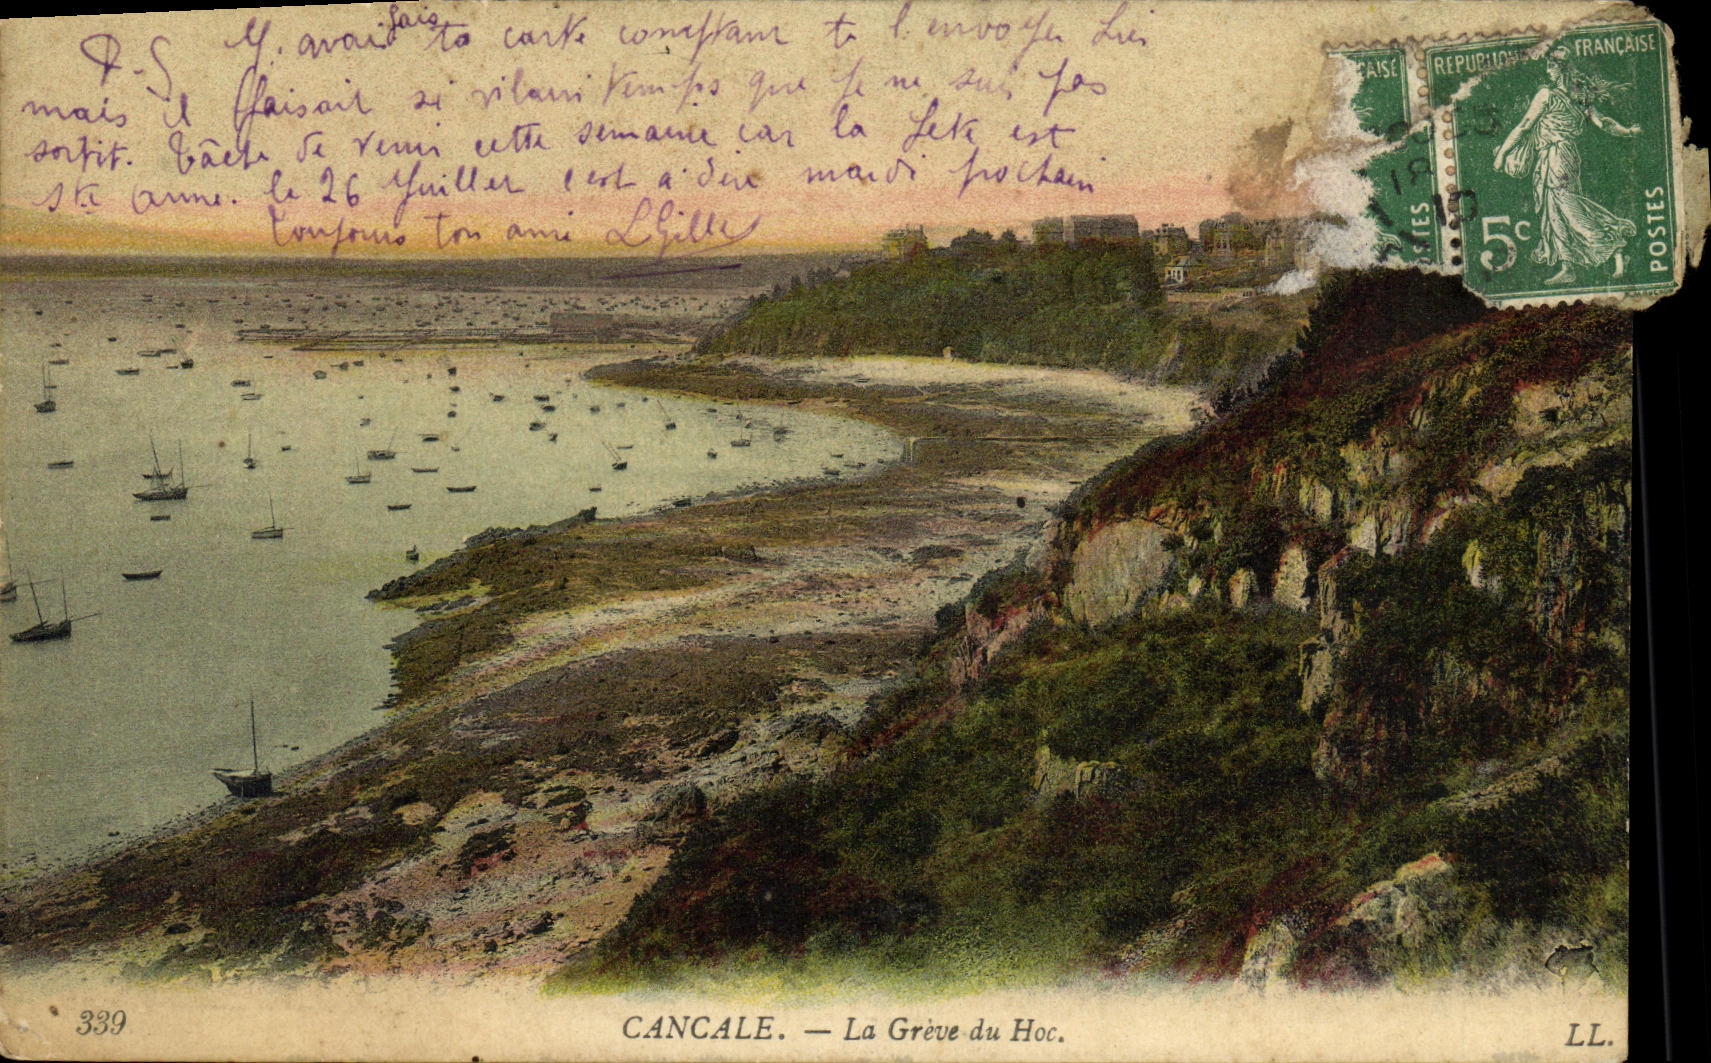 P.S J. avais fais ta carte comptant te l'envoyer hier
mais il faisait si vilain temps que je ne suis pas
sortit. Tâche de venir cette semaine car la fete est
Ste Anne. le 26 Juillet c'est a dire mardi prochain
Toujours ton ami LGille
CAISE
TES
REPUBLIQUE FRANÇAISE
5c
POSTES
18
10
339
CANCALE. — La Grève du Hoc.
LL.